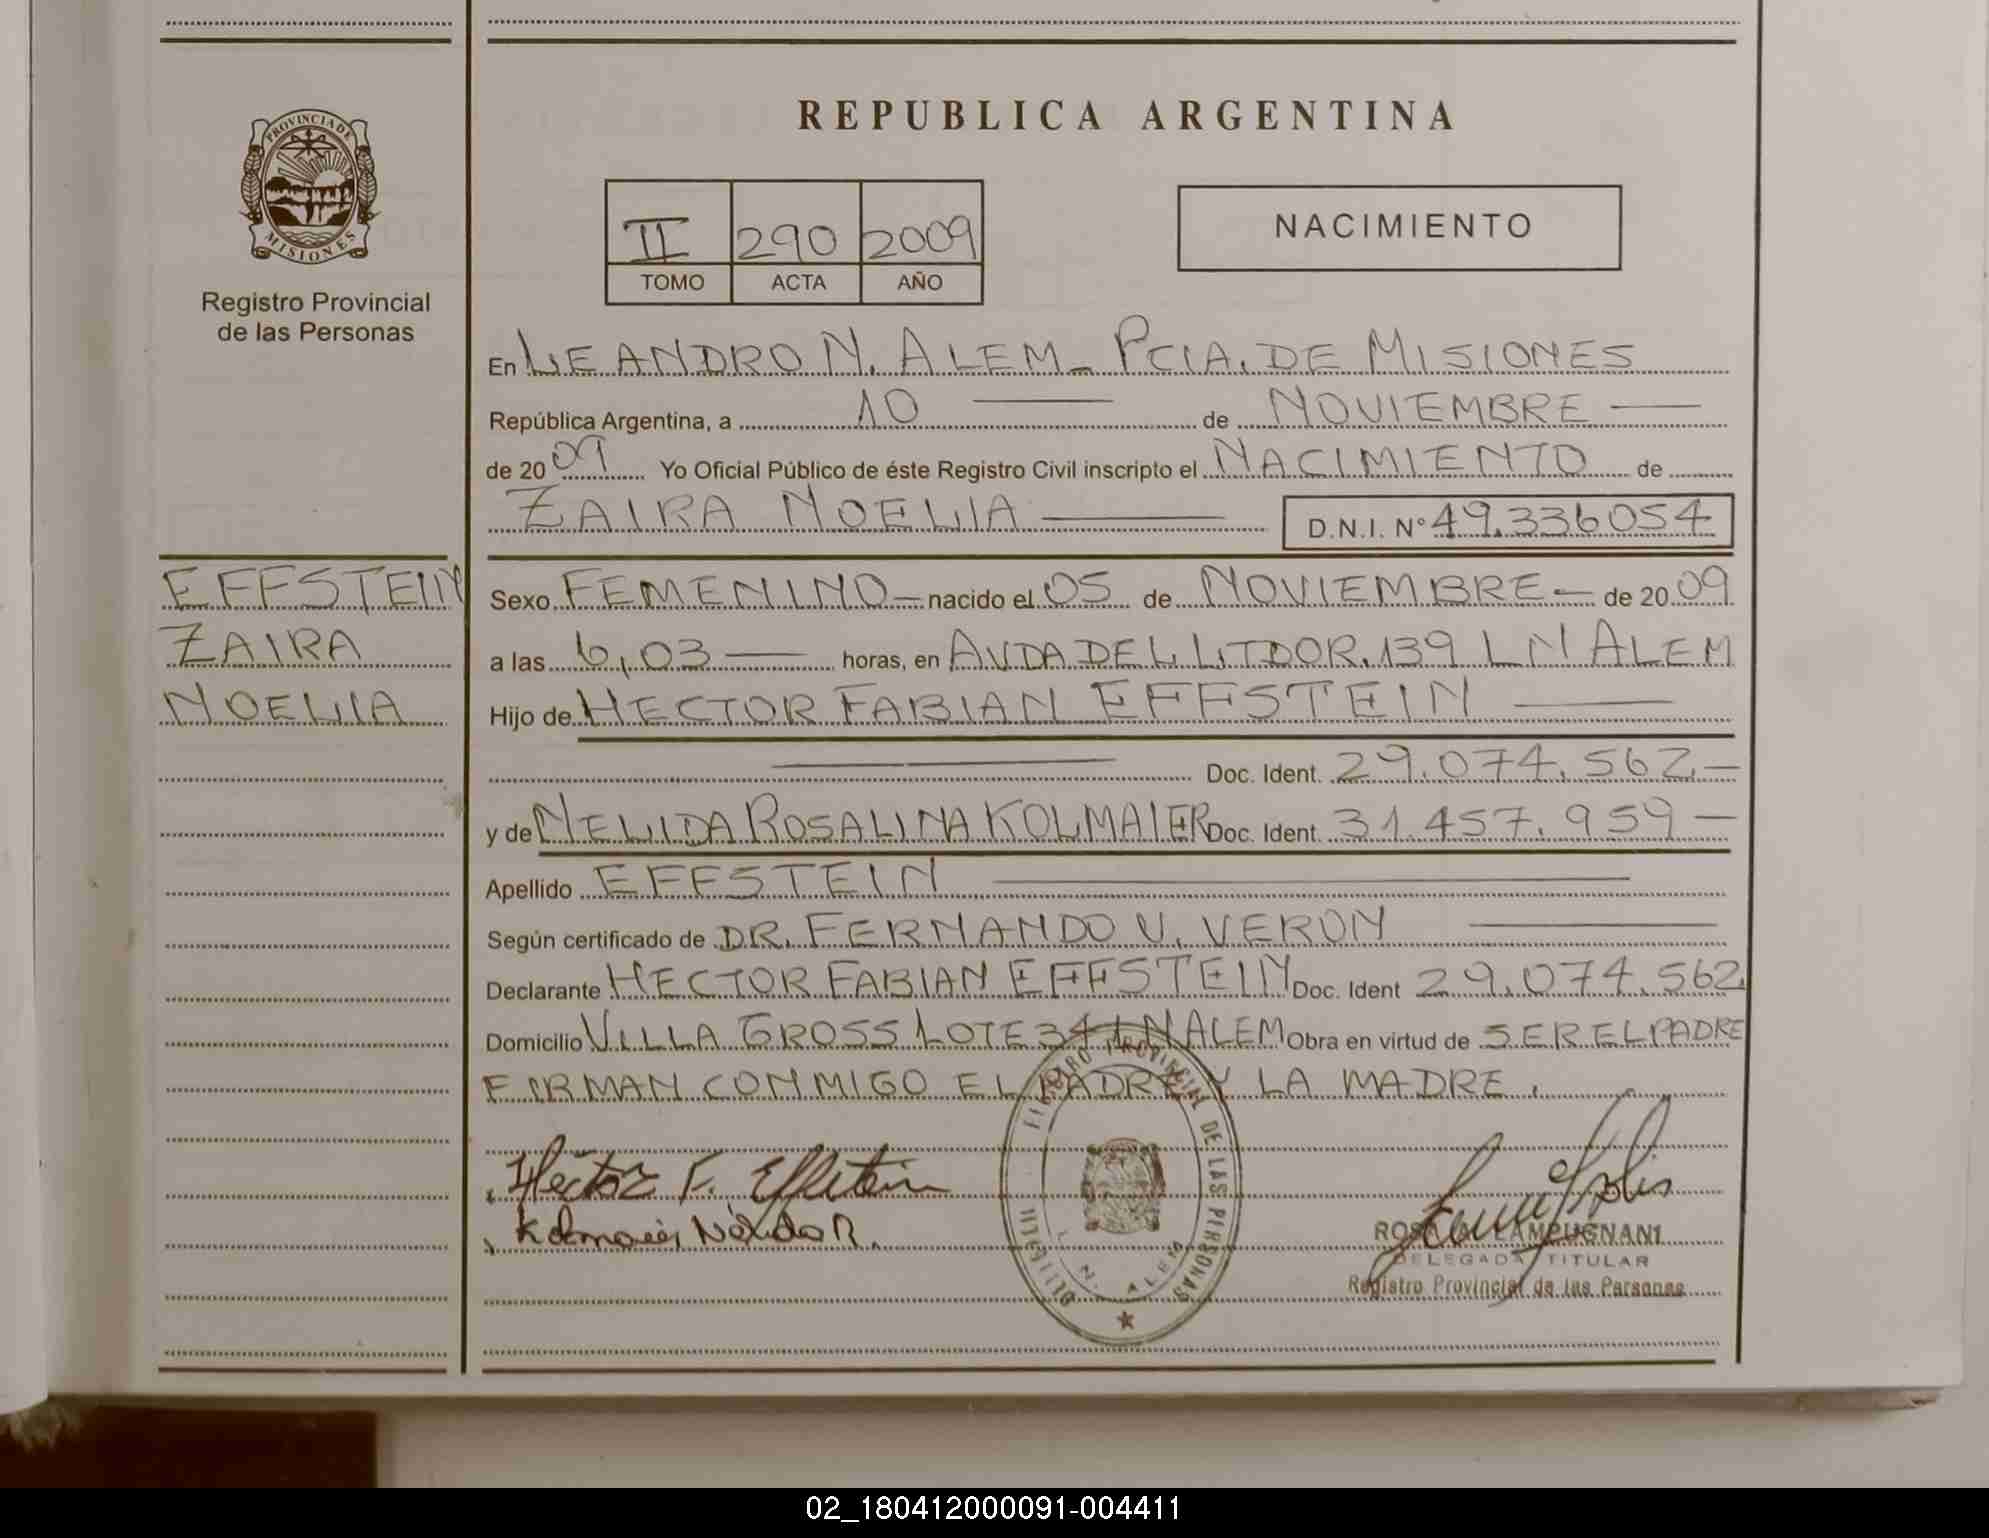 REPUBLICA ARGENTINA
PROVINCIA DE
MISIONES
Registro Provincial
de las Personas
II 290 2009
TOMO ACTA AÑO
NACIMIENTO
En LEANDRO N. ALEM - PCIA. DE MISIONES
República Argentina, a 10 de NOVIEMBRE
de 20 09 Yo Oficial Público de éste Registro Civil inscripto el NACIMIENTO de
ZAIRA NOELIA D.N.I. Nº 49.336054
EFFSTEIN
ZAIRA
NOELIA
Sexo FEMENINO nacido el 05 de NOVIEMBRE de 20 09
a las 6,03 horas, en AVDA DEL LTDOR. 139 L N ALEM
Hijo de HECTOR FABIAN EFFSTEIN
Doc. Ident. 29.074.562
y de NELIDA ROSALINA KOLMAIER Doc. Ident. 31.457.959
Apellido EFFSTEIN
Según certificado de DR. FERNANDO V. VERON
Declarante HECTOR FABIAN EFFSTEIN Doc. Ident 29.074.562
Domicilio VILLA GROSS LOTE 34 LN ALEM Obra en virtud de SER EL PADRE
FIRMAN CONMIGO EL PADRE Y LA MADRE.
REGISTRO PROVINCIAL DE LAS PERSONAS
L. N. ALEM
Héctor F. Effstein
Kolmaier Nélida R.
ROSA LAMPUGNANI
DELEGADA TITULAR
Registro Provincial de las Personas
02_180412000091-004411